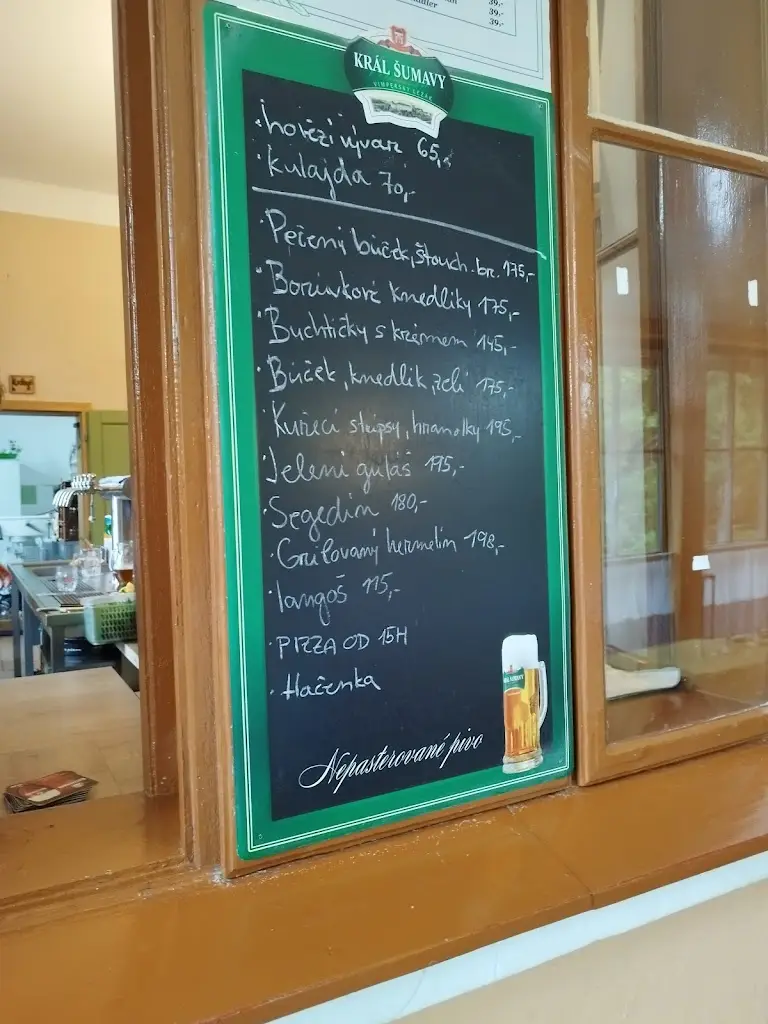 39,-
39,-
39,-
KRÁL ŠUMAVY
VIMPERSKÝ LEŽÁK
· hovězí vývar 65,-
· kulajda 70,-
· Pečený bůček, štouch. br. 175,-
· Borůvkové knedlíky 175,-
· Buchtičky s krémem 145,-
· Bůček, knedlík, zelí 175,-
· Kuřecí stripsy, hranolky 195,-
· Jelení guláš 195,-
· Segedín 180,-
· Grilovaný hermelín 198,-
· langoš 115,-
· PIZZA OD 15H
· Hačenka
KRÁL ŠUMAVY
Nepasterované pivo